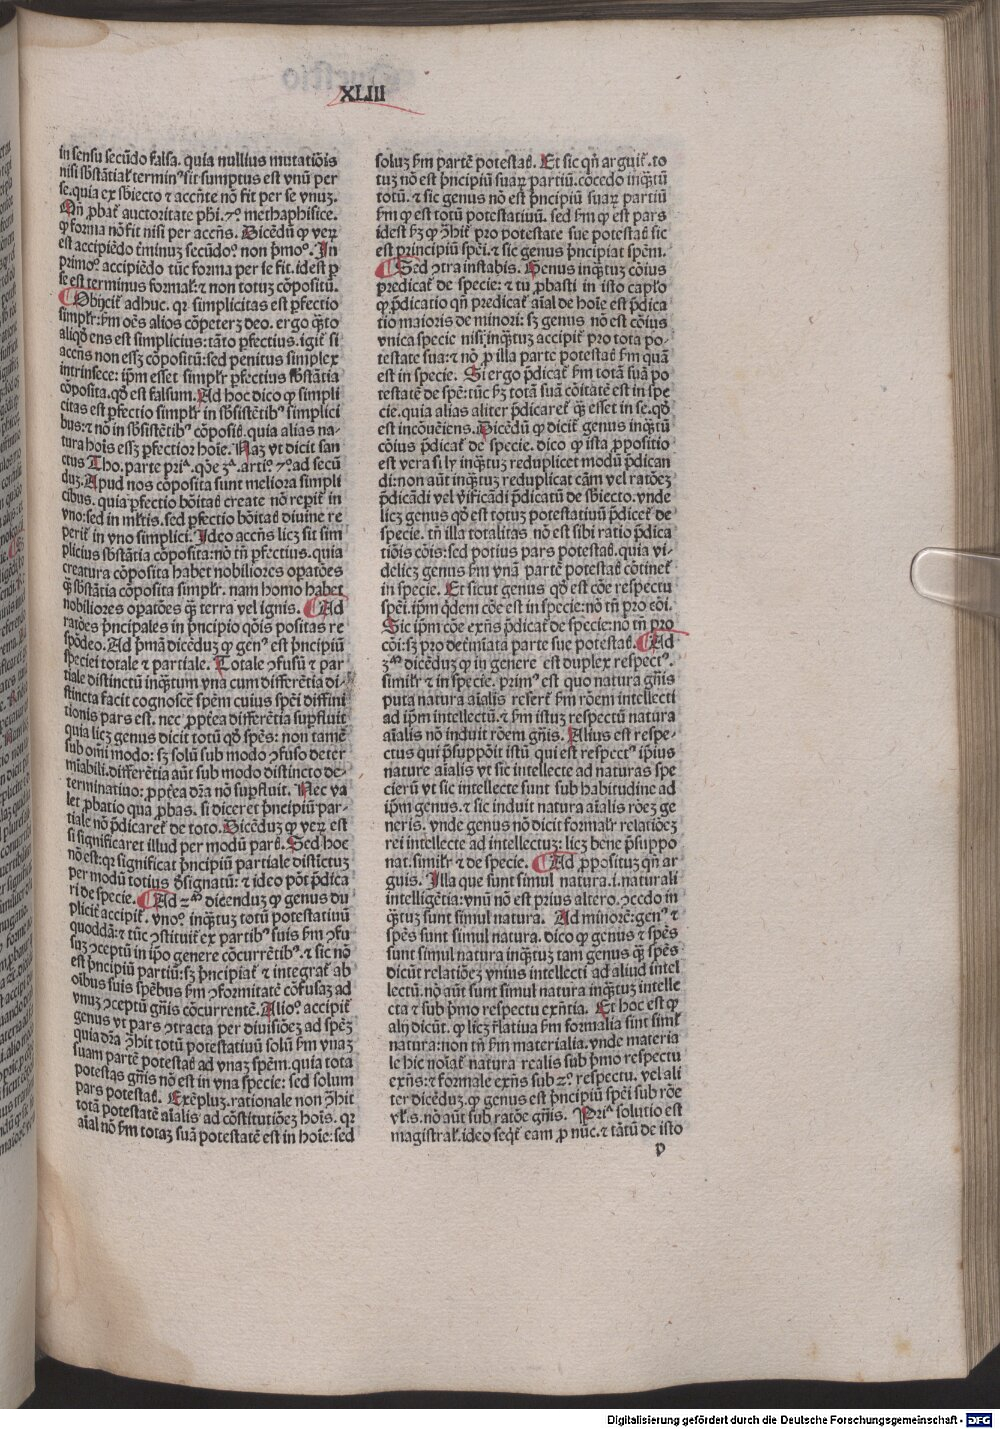 XLIII
in sensu secūdo falsa. quia nullius mutatiōis
nisi sb̄stātial' terminꝰ sit sumptus est vnū per
se. quia ex sb̄iecto ⁊ accn̄te nō fit per se vnuꝫ.
Qn̄ ꝓbat᷑ auctoritate ph̄i. 7º methaphisice.
ꝙ forma nō fit nisi per accn̄s. Dicēdū ꝙ veꝝ
est accipiēdo t̄minuꝫ secūdoº non p̄moº. In
primoº accipiēdo tūc forma per se fit. idest ꝑ
se est terminus formal': ⁊ non totuꝫ cōpositū.
¶ Obijcit᷑ adhuc. qꝛ simplicitas est ꝑfectio
simpl'r: ẜm oēs alios cōpeterꝫ deo. ergo quāto
aliqō ens est simplicius: tāto ꝑfectius. igit᷑ si
accn̄s non essꝫ cōpositū: sed penitus simplex
intrinsece: ip̄m esset simpl'r ꝑfectius sb̄stātia
cōposita. qō est falsum. Ad hoc dico ꝙ simpli
citas est ꝑfectio simpl'r in sb̄sistētibꝰ simplici
bus: ⁊ nō in sb̄sistētibꝰ cōposit. quia alias na-
tura hoīs essꝫ ꝑfectior hoīe. Naꝫ vt dicit san
ctus Tho. parte priª. qōe 3ª. artiº. 7º ad secū
duꝫ. Apud nos cōposita sunt meliora simpli
cibus. quia ꝑfectio bōitas create nō reperit᷑ in
vno: sed in mltis. sed ꝑfectio bōitas diuine re
perit᷑ in vno simplici. Ideo accn̄s licꝫ sit sim
plicius sb̄stātia cōposita: nō tn̄ ꝑfectius. quia
creatura cōposita habet nobiliores oꝑatōes
ꝙ̄ sb̄stātia cōposita simpl'r. nam homo habet
nobiliores oꝑatōes ꝙ̄ terra vel ignis. ¶ Ad
ratōes p̄ncipales in p̄ncipio qōis positas re
spōdeo. Ad p̄mā dicēduꝫ ꝙ genꝰ est p̄ncipiū
speciei totale ⁊ partiale. Totale ꝯfusū ⁊ par
tiale distinctū inqȝtum vna cum differētia di-
stincta facit cognoscē spēm cuius spēi diffini
tionis pars est. nec ꝓpt̄ea differētia suꝑfluit
quia licꝫ genus dicit totū qō spēs: non tamē
sub om̄i modo: sꝫ solū sub modo ꝯfuso deter
miābili. differētia aūt sub modo distincto de-
terminatino: ꝓpt̄ea dr̄a nō suꝑfluit. Nec va
let ꝓbatio qua ꝓbas. si diceret p̄ncipiū par-
tiale nō p̄dicaret᷑ de toto. Dicēduꝫ ꝙ veꝝ est
si significaret illud per modū part. Sed hoc
nō est: qꝛ significat p̄ncipiū partiale distictuꝫ
per modū totius d̄signatū: ⁊ ideo pōt p̄dica
ri de specie. ¶ Ad 2ᵐ dicenduꝫ ꝙ genus du
plicit᷑ accipit᷑. vnoº. inqȝtuꝫ totū potestatiuū
quoddā: ⁊ tūc ꝯstituit᷑ ex partibꝰ suis ẜm ꝯfu
suꝫ ꝯceptū in ip̄o genere cōcurrētibꝰ. ⁊ sic nō
est p̄ncipiū partiū: sꝫ p̄ncipiat᷑ ⁊ integrat᷑ ab
oībus suis spēbus ẜm ꝯformitatē cōfusaꝫ ad
vnuꝫ ꝯceptū gn̄is cōcurrentē. Alioº accipit᷑
genus vt pars ꝯtracta per diuisiōeꝫ ad spēꝫ
quia dr̄a ꝯhit totū potestatiuū solū ẜm vnaꝫ
suam partē potestat ad vnaꝫ spēm. quia tota
potestas gn̄is nō est in vna specie: sed solum
pars potestat. Exēpluꝫ. rationale non ꝯhit
totā potestatē aīalis ad cōstitutiōeꝫ hoīs. qꝛ
aīal nō ẜm totaꝫ suā potestatē est in hoīe: sed
soluꝫ ẜm partē potestat. Et sic qn̄ arguit᷑. to
tuꝫ nō est p̄ncipiū suaꝝ partiū. cōcedo inqȝtū
totū. ⁊ sic genus nō est p̄ncipiū suaꝝ partiū
ẜm ꝙ est totū potestatiuū. sed ẜm ꝙ est pars
idest ẜꝫ ꝙ ꝯhit᷑ pro potestate sue potestat sic
est principiū spēi. ⁊ sic genus p̄ncipiat spēm.
¶ Sed ꝯtra instabis. Genus inqȝtuꝫ cōius
predicat᷑ de specie: ⁊ tu ꝓbasti in isto capl'o
ꝙ p̄dicatio qn̄ predicat᷑ aīal de hoīe est p̄dica
tio maioris de minori: sꝫ genus nō est cōius
vnica specie nisi inqȝtuꝫ accipit᷑ pro tota po-
testate sua: ⁊ nō ꝓ illa parte potestat ẜm quā
est in specie. Si ergo p̄dicat᷑ ẜm totā suā po
testatē de spē: tūc ẜꝫ totā suā cōitatē est in spe
cie. quia alias aliter p̄dicaret᷑ ꝙ̄ esset in se. qō
est incōueniens. Dicēdū ꝙ dicit᷑ genus inqȝtū
cōius p̄dicat᷑ de specie. dico ꝙ ista ꝓpositio
est vera si ly inqȝtuꝫ reduplicet modū p̄dican
di: non aūt inqȝtuꝫ reduplicat cām vel ratōeꝫ
p̄dicādi vel v̄ificādi p̄dicatū de sb̄iecto. vnde
licꝫ genus qō est totuꝫ potestatiuū p̄dicet᷑ de
specie. tn̄ illa totalitas nō est sibi ratio p̄dica
tiōis cōis: sed potius pars potestat. quia vi-
delicꝫ genus ẜm vnā partē potestat cōtinet᷑
in specie. Et sicut genus qō est cōe respectu
spēi. ip̄m qdem cōe est in specie: nō tn̄ pro cōi.
Sic ip̄m cōe exn̄s p̄dicat᷑ de specie: nō tn̄ pro
cōi: sꝫ pro det̄miata parte sue potestat. ¶ Ad
3ᵐ dicēduꝫ ꝙ in genere est duplex respectꝰ.
simil'r ⁊ in specie. primꝰ est quo natura gn̄is
puta natura aīalis refert᷑ ẜm rōem intellecti
ad ip̄m intellectū. ⁊ ẜm istuꝫ respectū natura
aīalis nō induit rōem gn̄is. Alius est respe-
ctus qui p̄suppōit istū qui est respectꝰ ip̄ius
nature aīalis vt sic intellecte ad naturas spe
cierū vt sic intellecte sunt sub habitudine ad
ip̄m genus. ⁊ sic induit natura aīalis rōeꝫ ge
neris. vnde genus nō dicit formal'r relatiōeꝫ
rei intellecte ad intellectuꝫ: licꝫ bene p̄suppo
nat. simil'r ⁊ de specie. ¶ Ad ꝓposituꝫ qn̄ ar
guis. Illa que sunt simul natura .i. naturali
intelligētia: vnū nō est prius altero. ꝯcedo in
qȝtuꝫ sunt simul natura. Ad minorē: genꝰ ⁊
spēs sunt simul natura. dico ꝙ genus ⁊ spēs
sunt simul natura inqȝtuꝫ tam genus ꝙ̄ spēs
dicūt relatiōeꝫ vnius intellecti ad aliud intel
lectū. nō aūt sunt simul natura inqȝtuꝫ intelle
cta ⁊ sub p̄mo respectu exn̄tia. Et hoc est ꝙ
alij dicūt. ꝙ licꝫ r̄latiua ẜm formalia sint siml'
natura: non tn̄ ẜm materialia. vnde materia
le hic noīat᷑ natura realis sub p̄mo respectu
exn̄s: ⁊ formale exn̄s sub 2º. respectu. vel ali
ter dicēduꝫ. ꝙ genus est p̄ncipiū spēi sub rōe
vl'is. nō aūt sub ratōe gn̄is. Priª solutio est
magistral'. ideo seqt᷑ eam ꝓ nūc. ⁊ tātū de isto
v
Digitalisierung gefördert durch die Deutsche Forschungsgemeinschaft - DFG